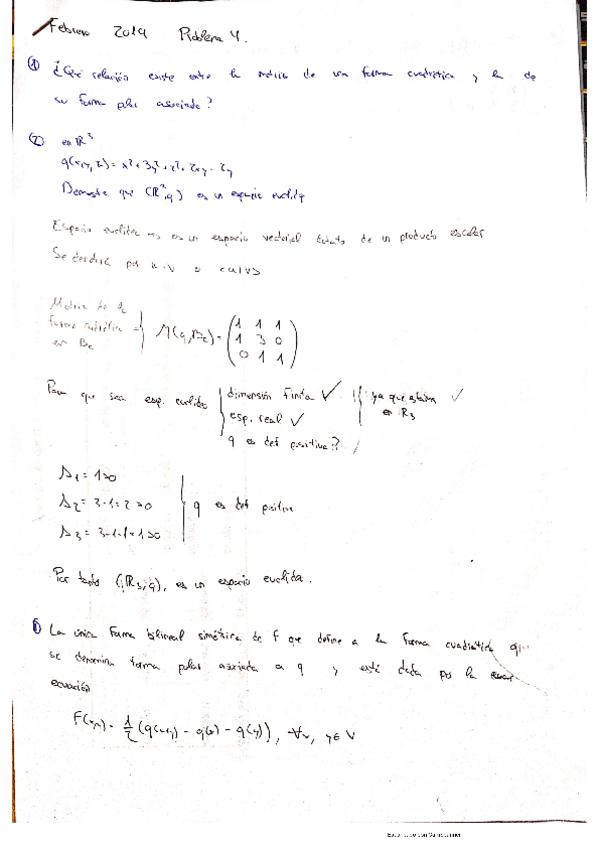 Febrero 2019 Problema 4.
① ¿Qué relación existe entre la matriz de una forma cuadrática y la de
su forma polar asociada?
② en ℝ³
q(x,y,z) = x²+3y²+z²+2xy-2y
Demuestre que (ℝ³,q) es un espacio euclídeo
Espacio euclídeo es un espacio vectorial dotado de un producto escalar
Se denotará por u·v o <u,v>
Matriz de la
forma cuadrática
en Bc
M(q,Bc) =
1 1 1
1 3 0
0 1 1
Para que sea esp. euclídeo
dimensión finita ✓
esp. real ✓
q es def positiva?
ya que estamos ✓
en R₃
Δ₁ = 1>0
Δ₂ = 3-1=2>0
Δ₃ = 3-1-1=1>0
q es def positiva
Por tanto (ℝ₃,q), es un espacio euclídeo.
① La única forma bilineal simétrica de f que define a la forma cuadrática q
se denomina forma polar asociada a q y está dada por la
ecuación
F(x,y) = 1/2 (q(x+y) - q(x) - q(y)), ∀x, y∈V